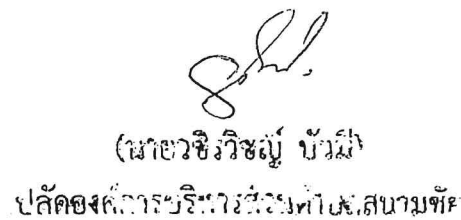 (นายวชิรวิชญ์ บัวมี)
ปลัดองค์การบริหารส่วนตำบลสนามชัย